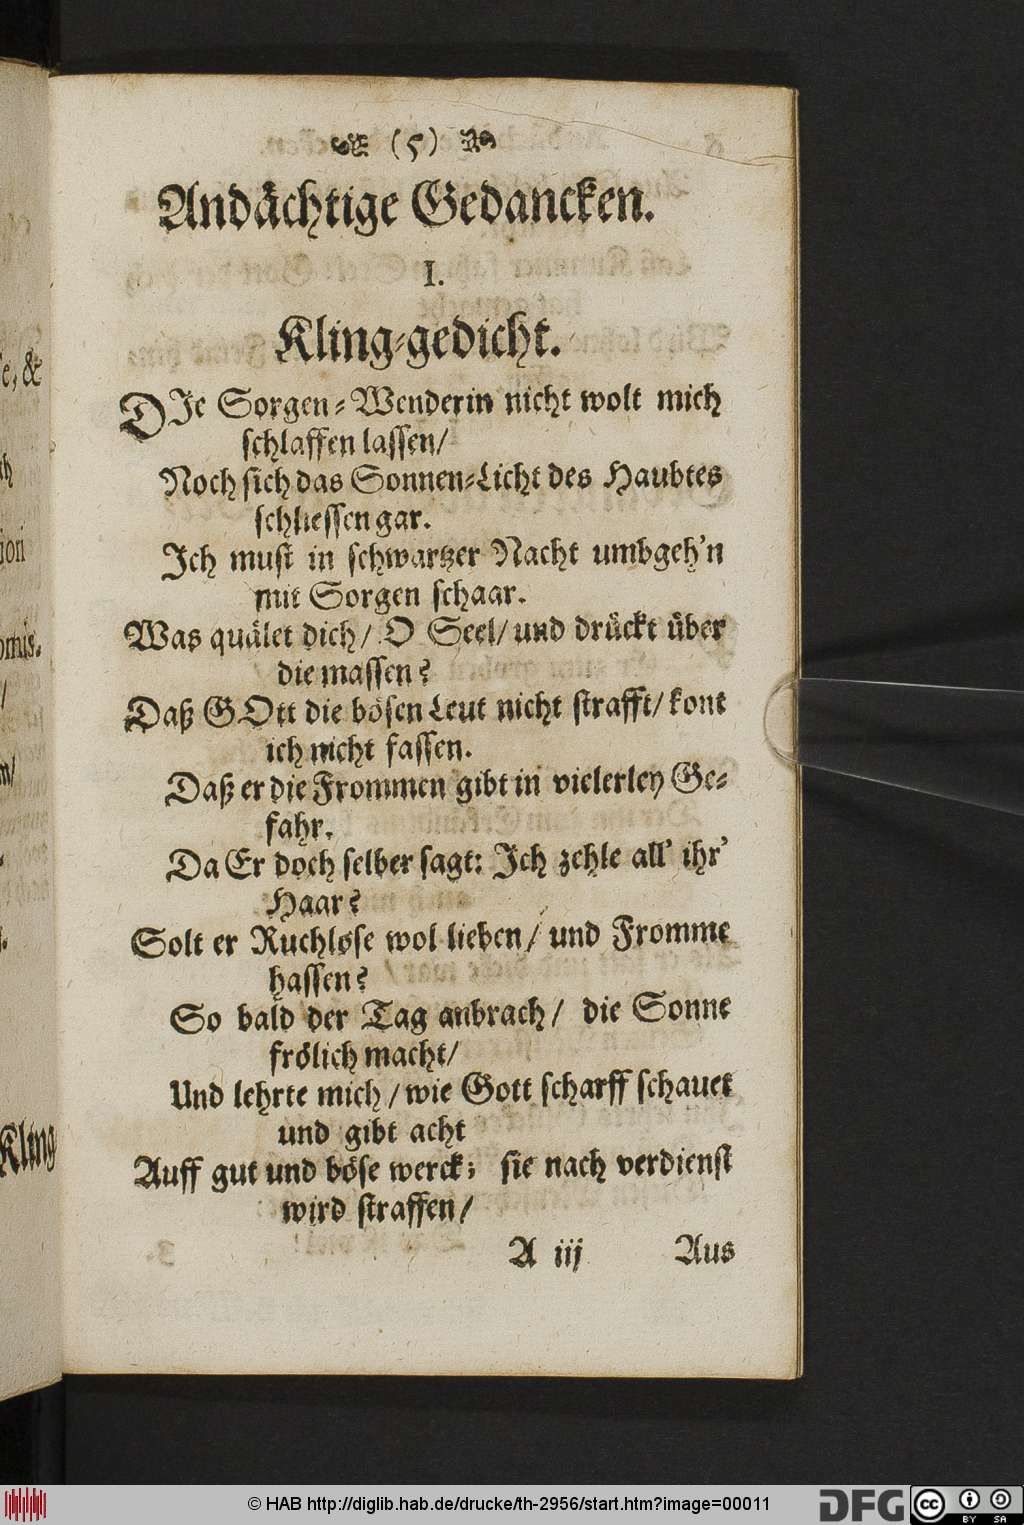 (5)
Andächtige Gedancken.
I.
Kling-gedicht.
DIe Sorgen-Wenderin nicht wolt mich
schlaffen lassen/
Noch sich das Sonnen-Licht des Haubtes
schliessen gar.
Ich must in schwartzer Nacht umbgeh'n
mit Sorgen schaar.
Was quälet dich/ O Seel/ und drückt über
die massen?
Daß GOtt die bösen Leut nicht strafft/ kont
ich nicht fassen.
Daß er die Frommen gibt in vielerley Ge-
fahr.
Da Er doch selber sagt: Ich zehle all' ihr'
Haar?
Solt er Ruchlose wol lieben/ und Fromme
hassen?
So bald der Tag anbrach/ die Sonne
frölich macht/
Und lehrte mich/ wie Gott scharff schauet
und gibt acht
Auff gut und böse werck; sie nach verdienst
wird straffen/
A iij Aus
e, &
jori
omis.
/
n/
Kling
© HAB http://diglib.hab.de/drucke/th-2956/start.htm?image=00011
DFG
cc
BY SA